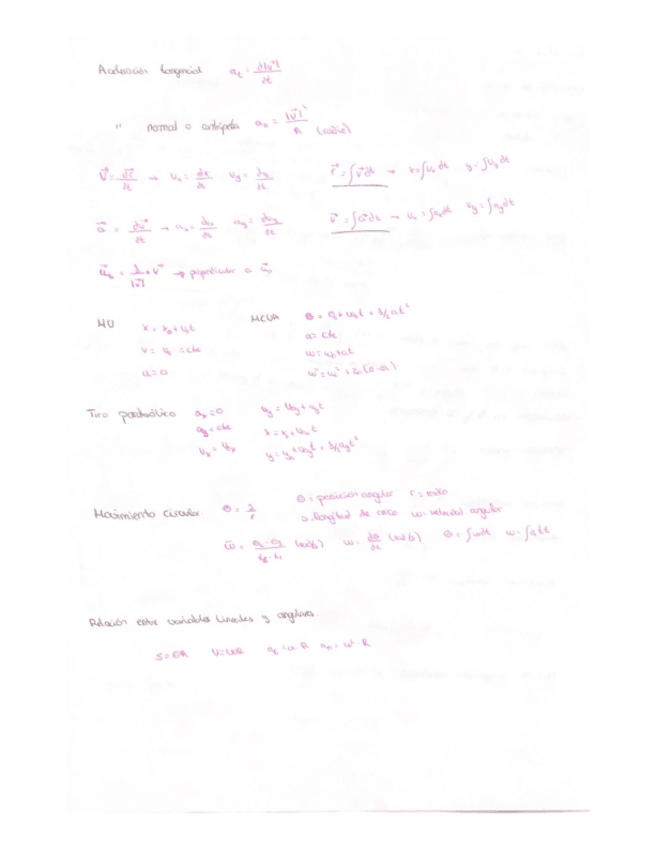 Aceleración tangencial a_t = d|v⃗|/dt
" normal o centrípeta a_n = |v⃗|²/R (radio)
v⃗ = dr⃗/dt → v_x = dx/dt v_y = dy/dt r⃗ = ∫v⃗dt → x = ∫v_x dt y = ∫v_y dt
a⃗ = dv⃗/dt → a_x = dv_x/dt a_y = dv_y/dt v⃗ = ∫a⃗dt → v_x = ∫a_x dt v_y = ∫a_y dt
u⃗_t = 1/|v⃗| · v⃗ → perpendicular a u⃗_n
MU x = x_0 + v_0t MCUA θ = θ_0 + ω_0t + 1/2 αt²
v = v_0 = cte α = cte
a = 0 ω = ω_0 + αt
ω² = ω_0² + 2α(θ-θ_0)
Tiro parabólico a_x = 0 v_y = v_0y + a_yt
a_y = cte x = x_0 + v_0xt
v_x = v_0x y = y_0 + v_0yt + 1/2 a_yt²
Movimiento circular θ = s/r θ = posición angular r = radio
s = longitud de arco ω = velocidad angular
ω̅ = θ_2 - θ_1/t_2 - t_1 (rad/s) ω = dθ/dt (rad/s) θ = ∫ωdt ω = ∫αdt
Relación entre variables lineales y angulares.
S = θR V = ωR a_t = α·R a_n = ω²·R